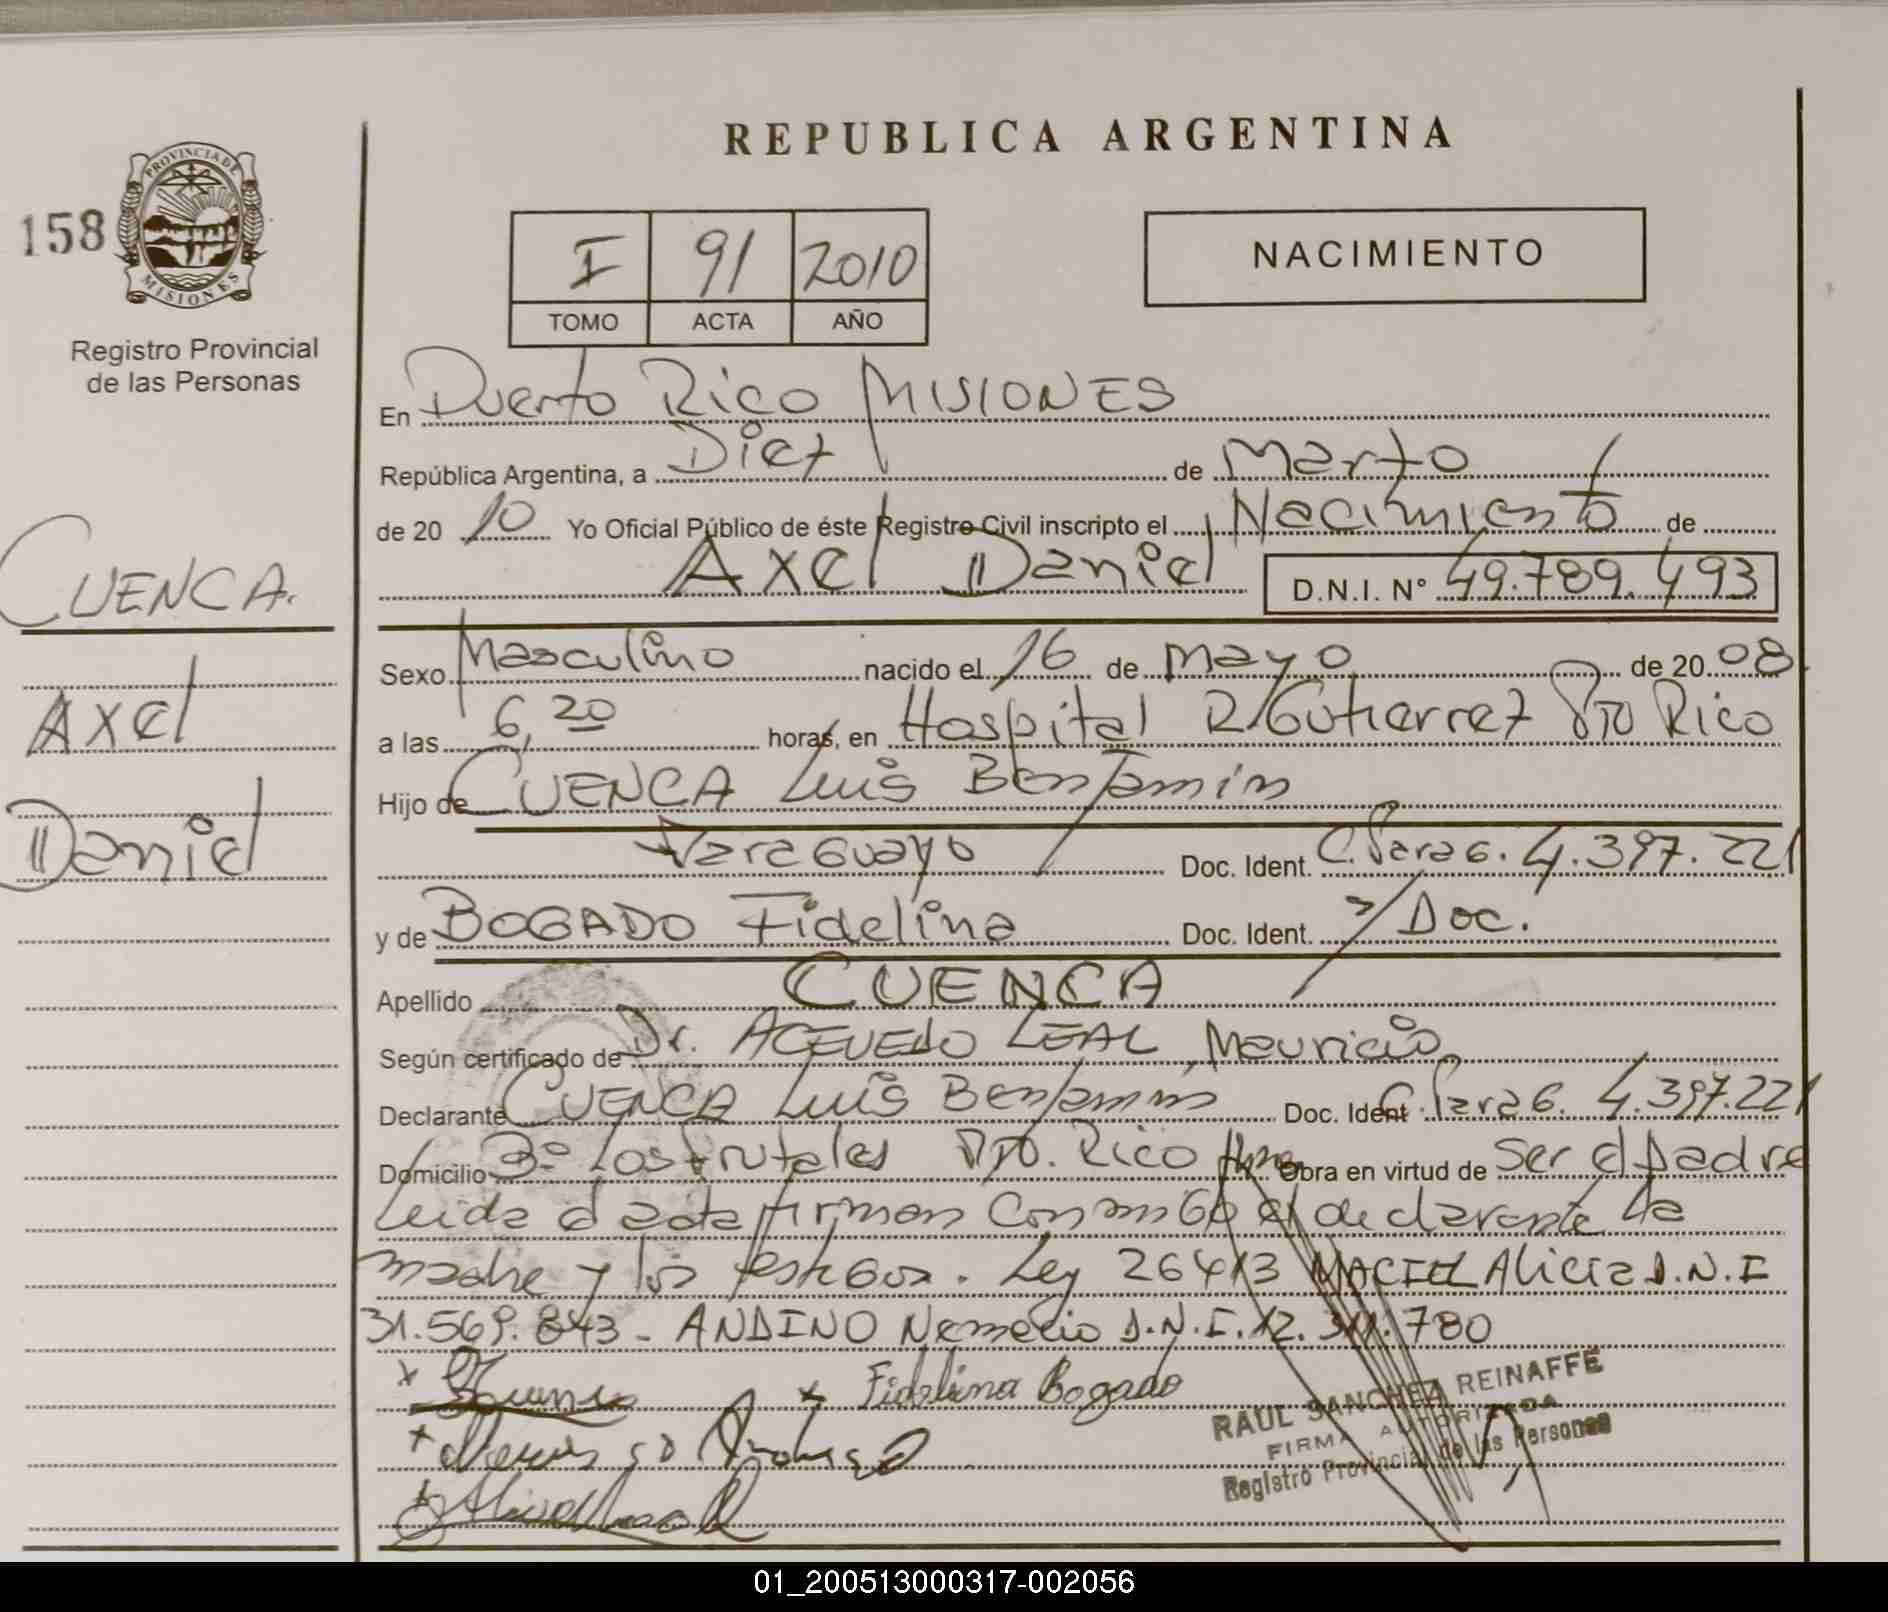 REPUBLICA ARGENTINA
158
PROVINCIA DE
MISIONES
Registro Provincial
de las Personas
I 91 2010
TOMO ACTA AÑO
NACIMIENTO
En Puerto Rico MISIONES
República Argentina, a Diez de Marzo
de 20 10 Yo Oficial Público de éste Registro Civil inscripto el Nacimiento de
Axel Daniel D.N.I. N° 49.789.493
CUENCA.
Axel
Daniel
Sexo Masculino nacido el 16 de Mayo de 20 08
a las 6,20 horas, en Hospital R. Gutierrez Pto Rico
Hijo de CUENCA Luis Benjamin
Paraguayo Doc. Ident. C. Parag. 4.397.221
y de BOGADO Fidelina Doc. Ident. s/Doc.
Apellido CUENCA
Según certificado de Dr. ACEVEDO LEAL, Mauricio
Declarante CUENCA Luis Benjamin Doc. Ident. C. Parag. 4.397.221
Domicilio Bº Los Frutales Pto. Rico Mnes Obra en virtud de Ser el padre
Leida el acta firman conmigo el declarante la
madre y los testigos. Ley 26413 MACIEL Alicia D.N.I
31.569.843 - ANDINO Nemecio D.N.I. 12. 780
x x Fidelina Bogado
x
x
RAUL SANCHEZ REINAFFE
FIRMA AUTORIZADA
Registro Provincial de las Personas
01_200513000317-002056